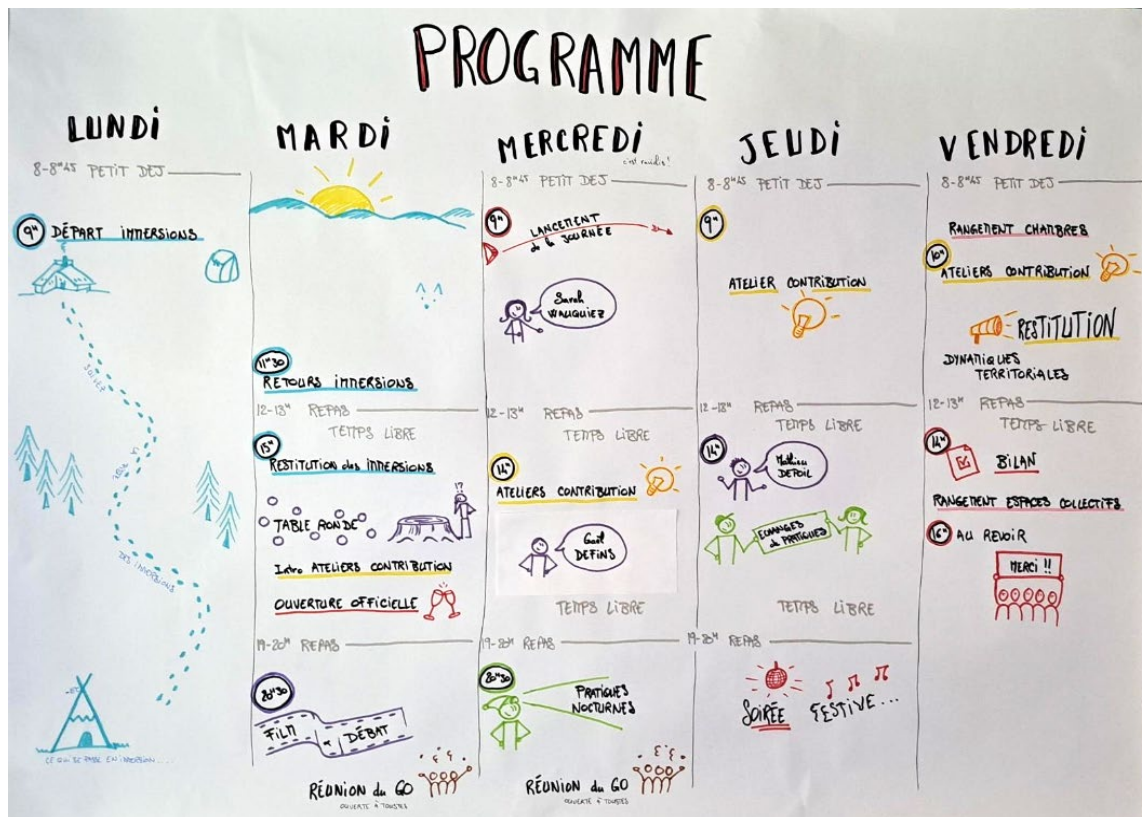 PROGRAMME
LUNDI
8-8H45 PETIT DEJ
9H DÉPART IMMERSIONS
DES IMMERSIONS
CE QUI SE PASSE EN IMMERSION....
MARDI
11H30
RETOURS IMMERSIONS
12-13H REPAS
TEMPS LIBRE
15H
RESTITUTION des IMMERSIONS
TABLE RONDE
!?
Intro ATELIERS CONTRIBUTION
OUVERTURE OFFICIELLE
19-20H REPAS
20H30
FILM
DÉBAT
RÉUNION du GO
OUVERTE à TOUSTES
MERCREDI
8-8H45 PETIT DEJ
9H
LANCEMENT
de la JOURNÉE
Sarah
WAUQUIEZ
12-13H REPAS
TEMPS LIBRE
14H
ATELIERS CONTRIBUTION
Gaël
DEFINS
TEMPS LIBRE
19-20H REPAS
20H30
PRATIQUES
NOCTURNES
RÉUNION du GO
OUVERTE à TOUSTES
JEUDI
8-8H45 PETIT DEJ
9H
ATELIER CONTRIBUTION
12-13H REPAS
TEMPS LIBRE
14H
Mathieu
DEPOIL
ECHANGES
de PRATIQUES
TEMPS LIBRE
19-20H REPAS
SOIRÉE FESTIVE...
VENDREDI
8-8H45 PETIT DEJ
RANGEMENT CHAMBRES
10H
ATELIERS CONTRIBUTION
RESTITUTION
DYNAMIQUES
TERRITORIALES
12-13H REPAS
TEMPS LIBRE
14H
BILAN
RANGEMENT ESPACES COLLECTIFS
16H AU REVOIR
MERCI !!